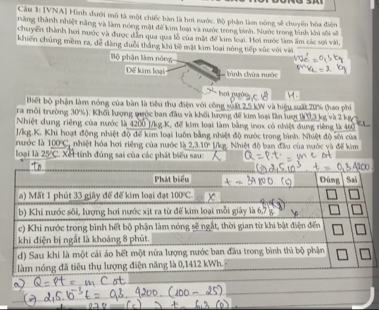 Câu 1: [VNA] Hình dưới mô tả một chiếc bàn là hơi nước. Bộ phận làm nóng sẽ chuyển hóa điện
năng thành nhiệt năng và làm nóng mặt đế kim loại và nước trong bình. Nước trong bình khi sôi sẽ
chuyển thành hơi nước và được dẫn qua qua lỗ của mặt đế kim loại. Hơi nước làm ẩm các sợi vải,
khiến chúng mềm ra, dễ dàng duỗi thẳng khi bề mặt kim loại nóng tiếp xúc với vải
Bộ phận làm nóng
Đế kim loại
bình chứa nước
hơi nước
Biết bộ phận làm nóng của bàn là tiêu thụ điện với công suất 2,5 kW và hiệu suất 70% (hao phí
ra môi trường 30%). Khối lượng nước ban đầu và khối lượng đế kim loại lần lượt là 0,3 kg và 2 kg
Nhiệt dung riêng của nước là 4200 J/kg.K, đế kim loại làm bằng inox có nhiệt dung riêng là 460
J/kg.K. Khi hoạt động nhiệt độ đế kim loại luôn bằng nhiệt độ nước trong bình. Nhiệt độ sôi của
nước là 100°C, nhiệt hóa hơi riêng của nước là 2,3.10⁶ J/kg. Nhiệt độ ban đầu của nước và đế kim
loại là 25°C. Xét tính đúng sai của các phát biểu sau:
Q = Pt = m c Δt
t = 0,3.4200
Phát biểu Đúng Sai
a) Mất 1 phút 33 giây để đế kim loại đạt 100°C.
b) Khi nước sôi, lượng hơi nước xịt ra từ đế kim loại mỗi giây là 6,7 g
c) Khi nước trong bình hết bộ phận làm nóng sẽ ngắt, thời gian từ khi bật điện đến
khi điện bị ngắt là khoảng 8 phút.
d) Sau khi là một cái áo hết một nửa lượng nước ban đầu trong bình thì bộ phận
làm nóng đã tiêu thụ lượng điện năng là 0,1412 kWh.
a) Q = Pt = m C Δt
t = 0,3 . 4200 . (100 - 25)